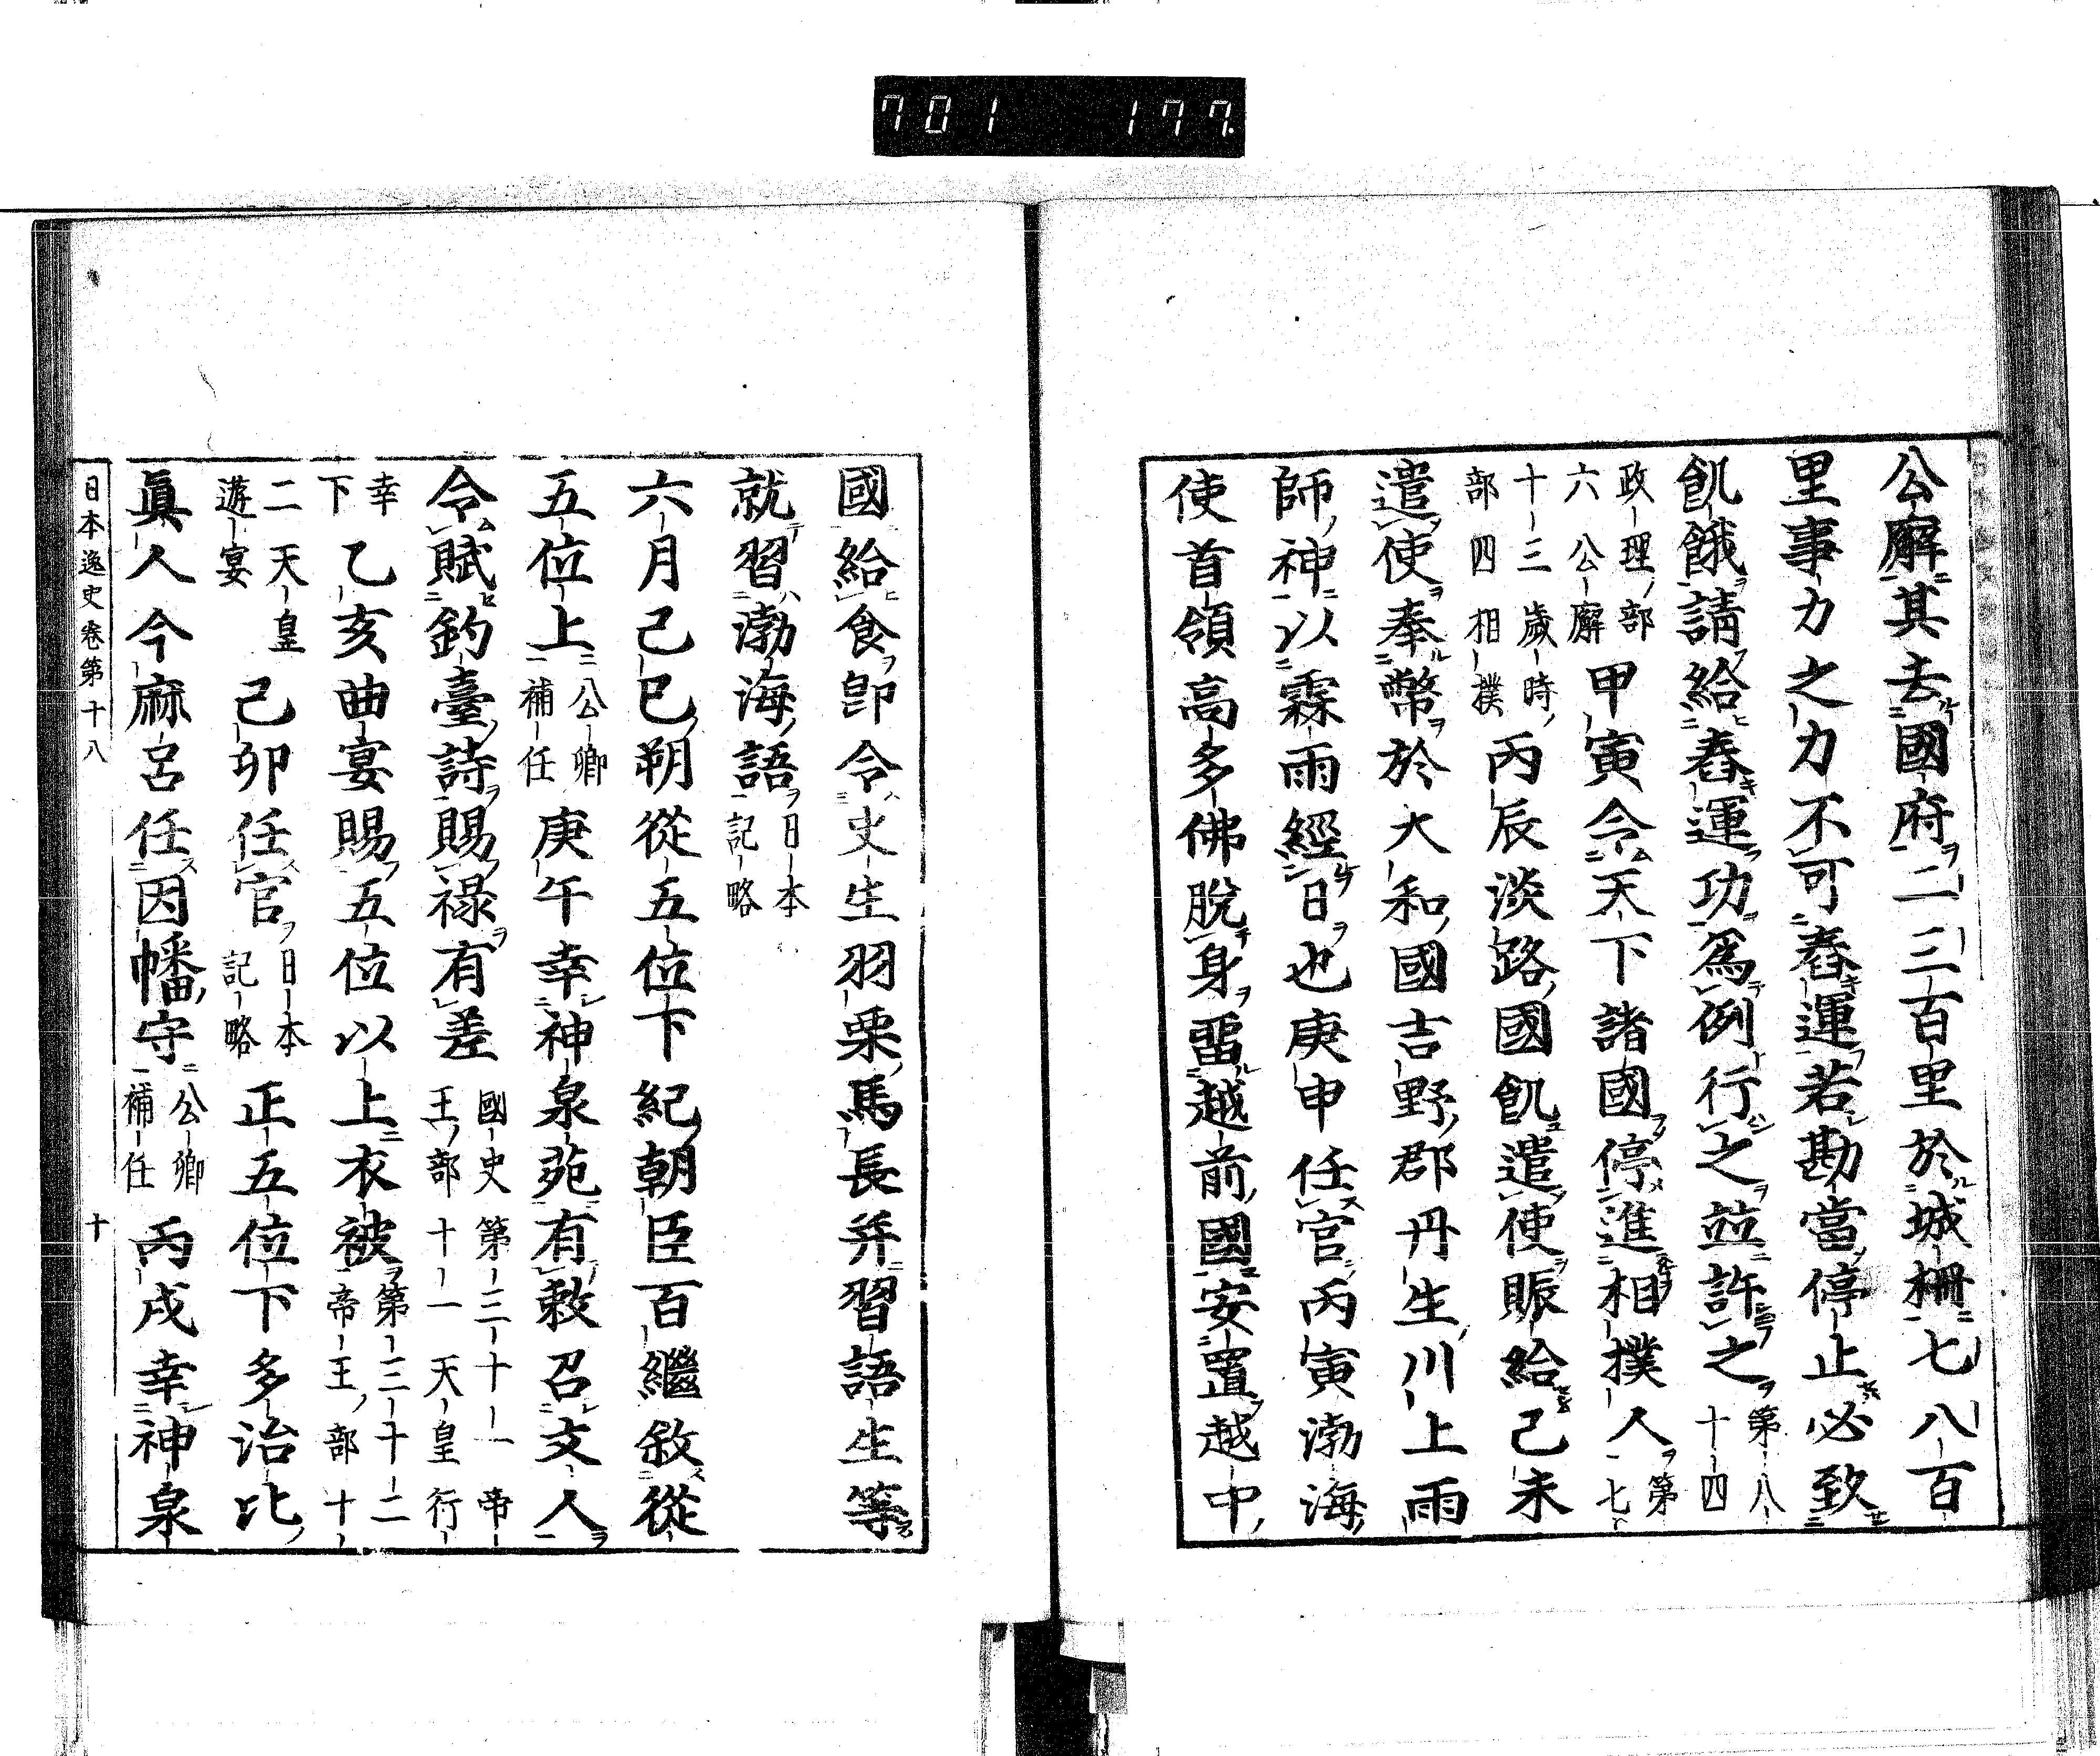 701 177
公廨其去國府二三百里於城柵七八百
里事力之力不可舂運若勘當停止必致
飢餓請給舂運功爲例行之竝許之第八十四
政理部六公廨甲寅令天下諸國停進相撲人第七
十三歲時部四相撲丙辰淡路國飢遣使賑給己未
遣使奉幣於大和國吉野郡丹生川上雨
師神以霖雨經日也庚申任官丙寅渤海
使首領高多佛脫身留越前國安置越中
國給食卽令史生羽栗馬長并習語生等
就習渤海語日本記略
六月己巳朔從五位下紀朝臣百繼敘從
五位上公卿補任庚午幸神泉苑有敕召文人
令賦釣臺詩賜祿有差國史第三十一帝王部十一天皇行
幸下乙亥曲宴賜五位以上衣被第三十二帝王部十
二天皇遊宴己卯任官日本記略正五位下多治比
眞人今麻呂任因幡守公卿補任丙戌幸神泉
日本逸史卷第十八 十